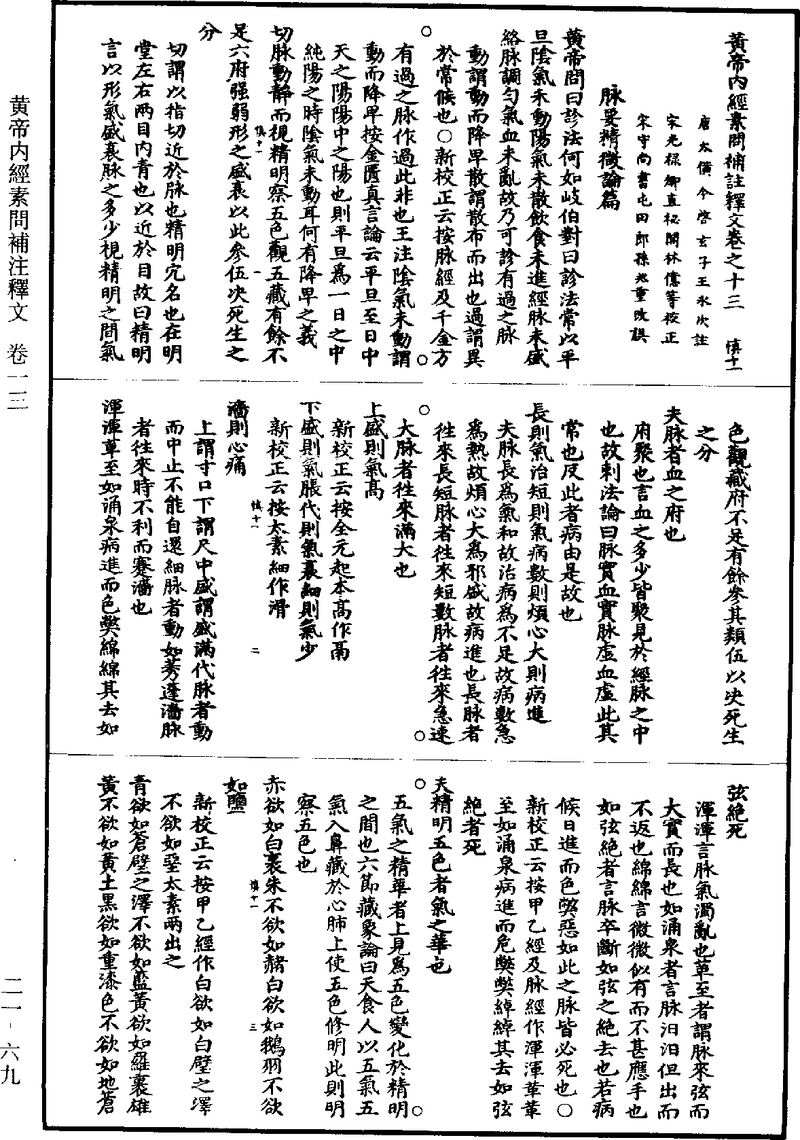 黃帝內經素問補註釋文卷之十三　慎十一
唐太僕令啓玄子王氷次註
宋光祿卿直秘閣林億等校正
宋守尚書屯田郎孫兆重改誤
脉要精微論篇
黃帝問曰診法何如岐伯對曰診法常以平
旦陰氣未動陽氣未散飲食未進經脉未盛
絡脉調勻氣血未亂故乃可診有過之脉
動謂動而降卑散謂散布而出也過謂異
於常候也○新校正云按脉經及千金方
有過之脉作過此非也王注陰氣未動謂
動而降卑按金匱真言論云平旦至日中
天之陽陽中之陽也則平旦爲一日之中
純陽之時陰氣未動耳何有降卑之義
切脉動靜而視精明察五色觀五藏有餘不
足六府强弱形之盛衰以此參伍決死生之
分
切謂以指切近於脉也精明穴名也在明
堂左右兩目內眥也以近於目故曰精明
言以形氣盛衰脉之多少視精明之間氣
色觀藏府不足有餘參其類伍以決死生
之分
夫脉者血之府也
府聚也言血之多少皆聚見於經脉之中
也故刺法論曰脉實血實脉虛血虛此其
常也反此者病由是故也
長則氣治短則氣病數則煩心大則病進
夫脉長爲氣和故治病爲不足故病數急
爲熱故煩心大爲邪盛故病進也長脉者
往來長短脉者往來短數脉者往來急速
大脉者往來滿大也
上盛則氣高
新校正云按全元起本高作鬲
下盛則氣脹代則氣衰細則氣少
新校正云按太素細作滑
濇則心痛
上謂寸口下謂尺中盛謂盛滿代脉者動
而中止不能自還細脉者動如莠蓬濇脉
者往來時不利而蹇濇也
渾渾革至如涌泉病進而色弊綿綿其去如
弦絕死
渾渾言脉氣濁亂也革至者謂脉來弦而
大實而長也如涌泉者言脉汩汩但出而
不返也綿綿言微微似有而不甚應手也
如弦絕者言脉卒斷如弦之絕去也若病
候日進而色弊惡如此之脉皆必死也○
新校正云按甲乙經及脉經作渾渾革革
至如涌泉病進而危弊弊綽綽其去如弦
絕者死
夫精明五色者氣之華也
五氣之精華者上見爲五色變化於精明
之間也六節藏象論曰天食人以五氣五
氣入鼻藏於心肺上使五色修明此則明
察五色也
赤欲如白裹朱不欲如赭白欲如鵝羽不欲
如鹽
新校正云按甲乙經作白欲如白璧之澤
不欲如堊太素兩出之
青欲如蒼璧之澤不欲如藍黃欲如羅裹雄
黃不欲如黃土黑欲如重漆色不欲如地蒼
慎十一　一
慎十一　二
慎十一　三
黄帝内經素問補注釋文　卷一三
二一－六九